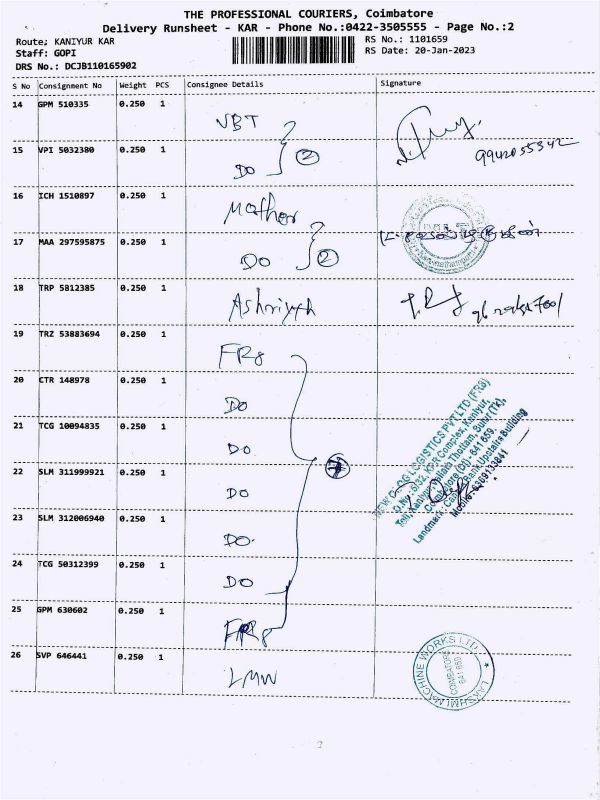 THE PROFESSIONAL COURIERS, Coimbatore
Delivery Runsheet - KAR - Phone No.:0422-3505555 - Page No.:2
Route; KANIYUR KAR
Staff: GOPI
DRS No.: DCJB110165902
RS No.: 1101659
RS Date: 20-Jan-2023
S No Consignment No Weight PCS Consignee Details Signature
14 GPM 510335 0.250 1 VBT
15 VPI 5032380 0.250 1 DO 2
16 ICH 1510897 0.250 1 Mather
17 MAA 297595875 0.250 1 DO 2
18 TRP 5812385 0.250 1
19 TRZ 53883694 0.250 1 FR8
20 CTR 148978 0.250 1 DO
21 TCG 10094835 0.250 1 DO
22 SLM 311999921 0.250 1 DO
23 SLM 312006940 0.250 1 DO
24 TCG 50312399 0.250 1 DO
25 GPM 630602 0.250 1 FR8
26 SVP 646441 0.250 1 LMW
LOGISTICS PVT LTD (FR8)
D.No: 5/32, KPR Complex, Kaniyur,
Thottam, Sulur (Tk),
Coimbatore (Dt) - 641 659.
Landmark: Bank Upstairs Building
Mobile: 6369133841
LAKSHMI MACHINE WORKS LTD
COIMBATORE
641 659